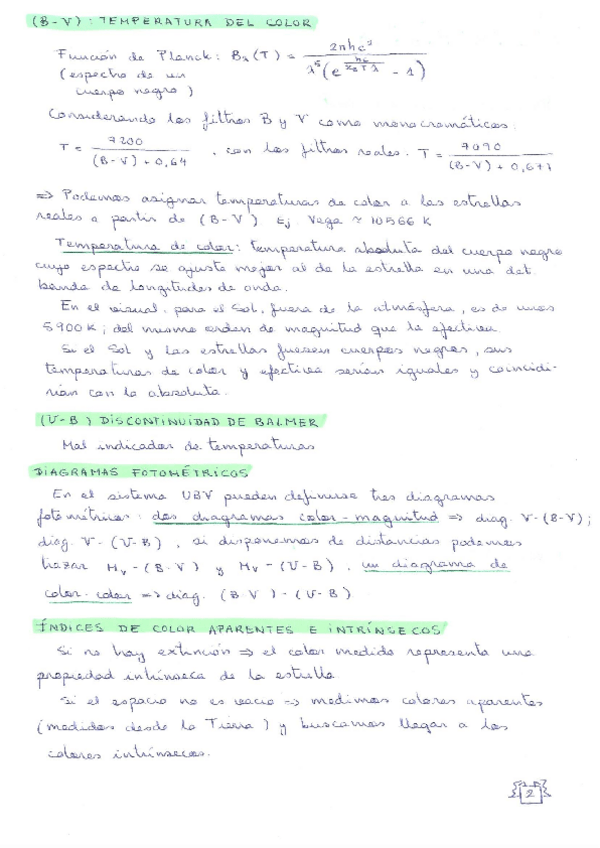 (B-V): TEMPERATURA DEL COLOR
Función de Planck: Bλ(T) = 2πhc² / λ⁵(e^(hc/KBTλ) - 1)
(espectro de un
cuerpo negro)
Considerando los filtros B y V como monocromáticos:
T = 7200 / (B-V) + 0,64 , con los filtros reales: T = 7090 / (B-V) + 0,677
=> Podemos asignar temperaturas de color a las estrellas
reales a partir de (B-V) Ej. Vega ≈ 10566 K
Temperatura de color: temperatura absoluta del cuerpo negro
cuyo espectro se ajusta mejor al de la estrella en una det.
banda de longitudes de onda.
En el visual, para el Sol, fuera de la atmósfera, es de unos
5900 K; del mismo orden de magnitud que la efectiva.
Si el Sol y las estrellas fuesen cuerpos negros, sus
temperaturas de color y efectiva serían iguales y coincidi-
rían con la absoluta.
(U-B) DISCONTINUIDAD DE BALMER
Mal indicador de temperaturas
DIAGRAMAS FOTOMÉTRICOS
En el sistema UBV pueden definirse tres diagramas
fotométricos: dos diagramas color-magnitud => diag. V-(B-V);
diag. V-(U-B), si disponemos de distancias podemos
trazar Mv-(B-V) y Mv-(U-B), un diagrama de
color-color => diag. (B-V)-(U-B)
ÍNDICES DE COLOR APARENTES E INTRÍNSECOS
Si no hay extinción => el color medido representa una
propiedad intrínseca de la estrella.
Si el espacio no es vacío => medimos colores aparentes
(medidos desde la Tierra) y buscamos llegar a los
colores intrínsecos.
2